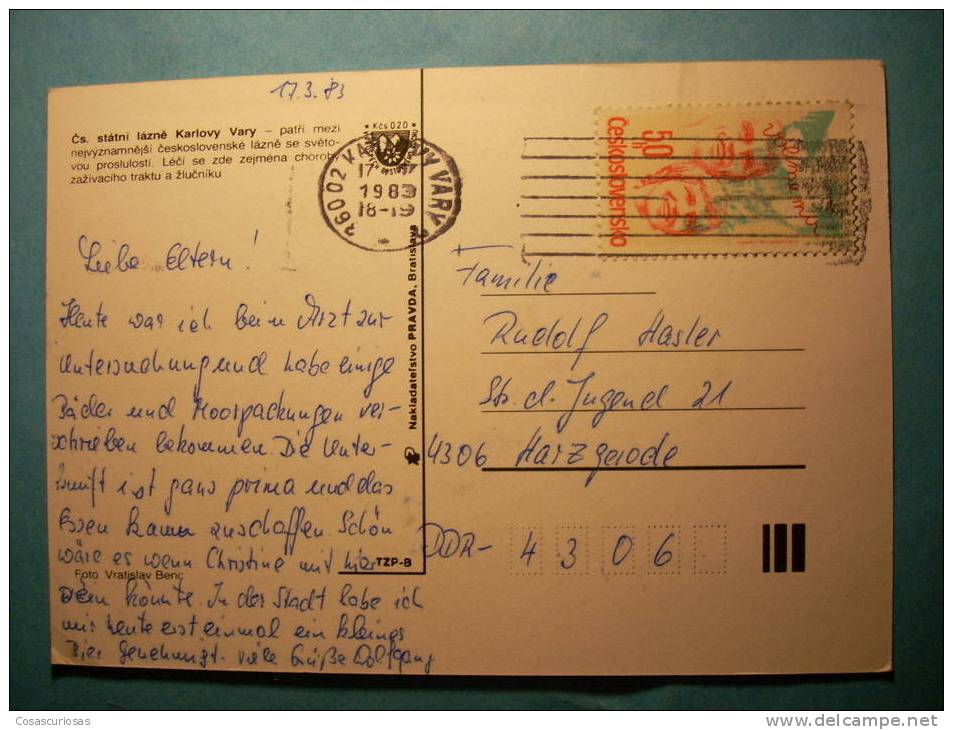 17.3.83
Čs. státní lázně Karlovy Vary – patří mezi
nejvýznamnější československé lázně se světo-
vou proslulostí. Léčí se zde zejména choroby
zažívacího traktu a žlučníku
Kčs 0,20
360 02 KARLOVY VARY
17
1983
18-19
50h
Československo
Liebe Eltern!
Heute war ich beim Arzt zur
Untersuchung und habe einige
Bäder und Moorpackungen ver-
schrieben bekommen. Die Unter-
kunft ist ganz prima und das
Essen kann
Schön
wäre es wenn Christine mit hier
sein könnte. In der Stadt habe ich
mir heute erst einmal ein kleines
Bier genehmigt. Viele Grüße Wolfgang
Foto Vratislav Benc
Nakladateľstvo PRAVDA, Bratislava
TZP-B
Familie
Rudolf Hasler
Str. d. Jugend 21
4306 Harzgerode
DDR- 4 3 0 6
Cosascuriosas
www.delcampe.net